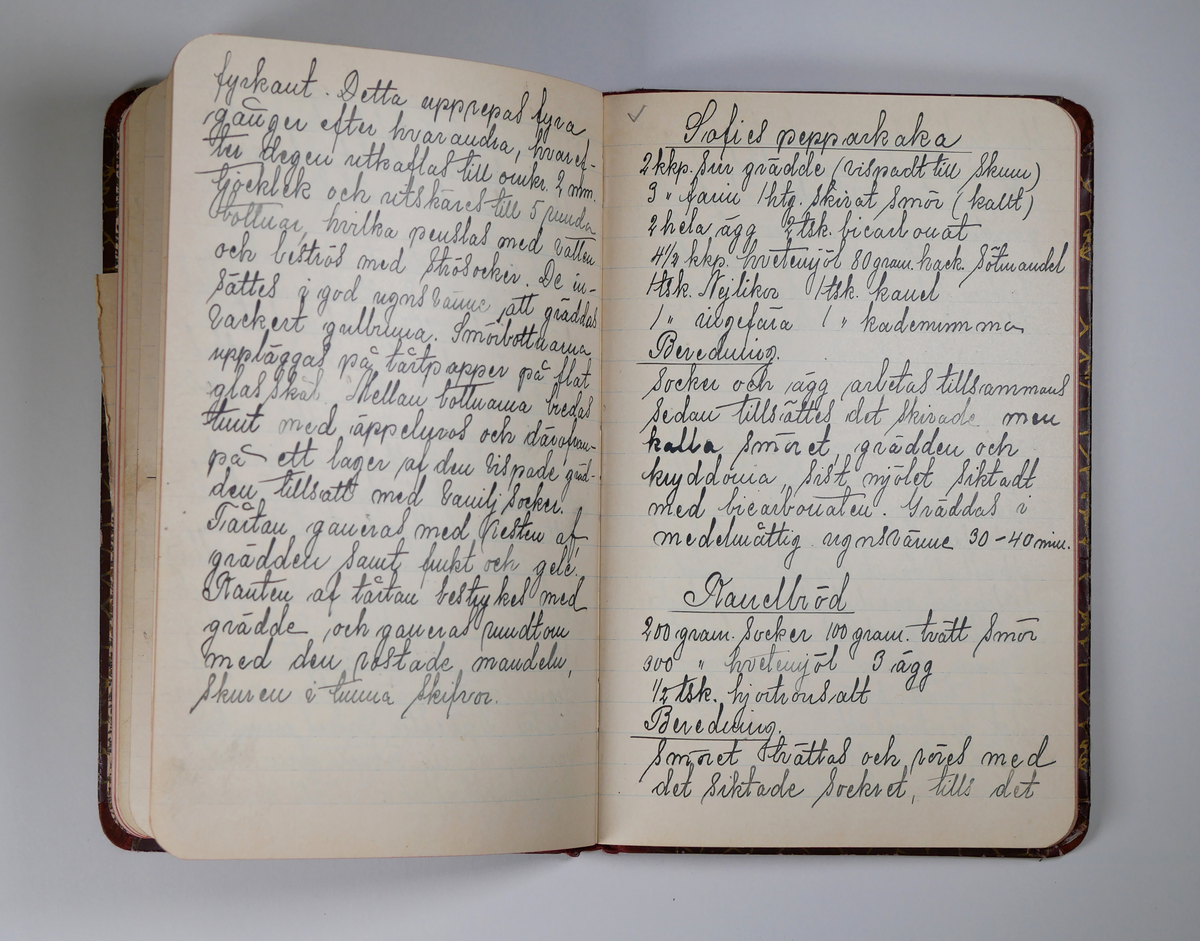 fyrkant. Detta upprepas fyra
gånger efter hvarandra, hvaref-
ter degen utkaflas till omkr. 2 mm.
tjocklek och utskäres till 5 runda
bottnar, hvilka penslas med vatten
och beströs med strösocker. De in-
sättes i god ugnsvärme, att gräddas
vackert gulbruna. Smörbottnarna
uppläggas på tårtpapper på flat
glasskål. Mellan bottnarna bredas
tunt med äppelmos och därofvan-
på ett lager af den vispade gräd-
den tillsatt med vaniljsocker.
Tårtan garneras med resten af
grädden samt frukt och gelé.
Kanten af tårtan bestrykes med
grädde, och garneras rundtom
med den rostade mandeln,
skuren i tunna skifvor.
Sofies pepparkaka
2 kkp. sur grädde (vispadt till skum)
3 " farin 1 htg. skirat smör (kallt)
2 hela ägg 2 tsk. bicarbonat
4½ kkp. hvetemjöl 80 gram. hack. sötmandel
1 tsk. Nejlikor 1 tsk. kanel
1 " ingefära 1 " kademumma
Beredning.
Socker och ägg arbetas tillsammans
sedan tillsättes det skirade men
kalla smöret, grädden och
kryddorna, sist mjölet siktadt
med bicarbonaten. Gräddas i
medelmåttig ugnsvärme 30-40 min.
Kanelbröd
200 gram. socker 100 gram. tvätt smör
300 " hvetemjöl 3 ägg
½ tsk. hjortronsalt
Beredning.
Smöret tvättas och röres med
det siktade sockret, tills det